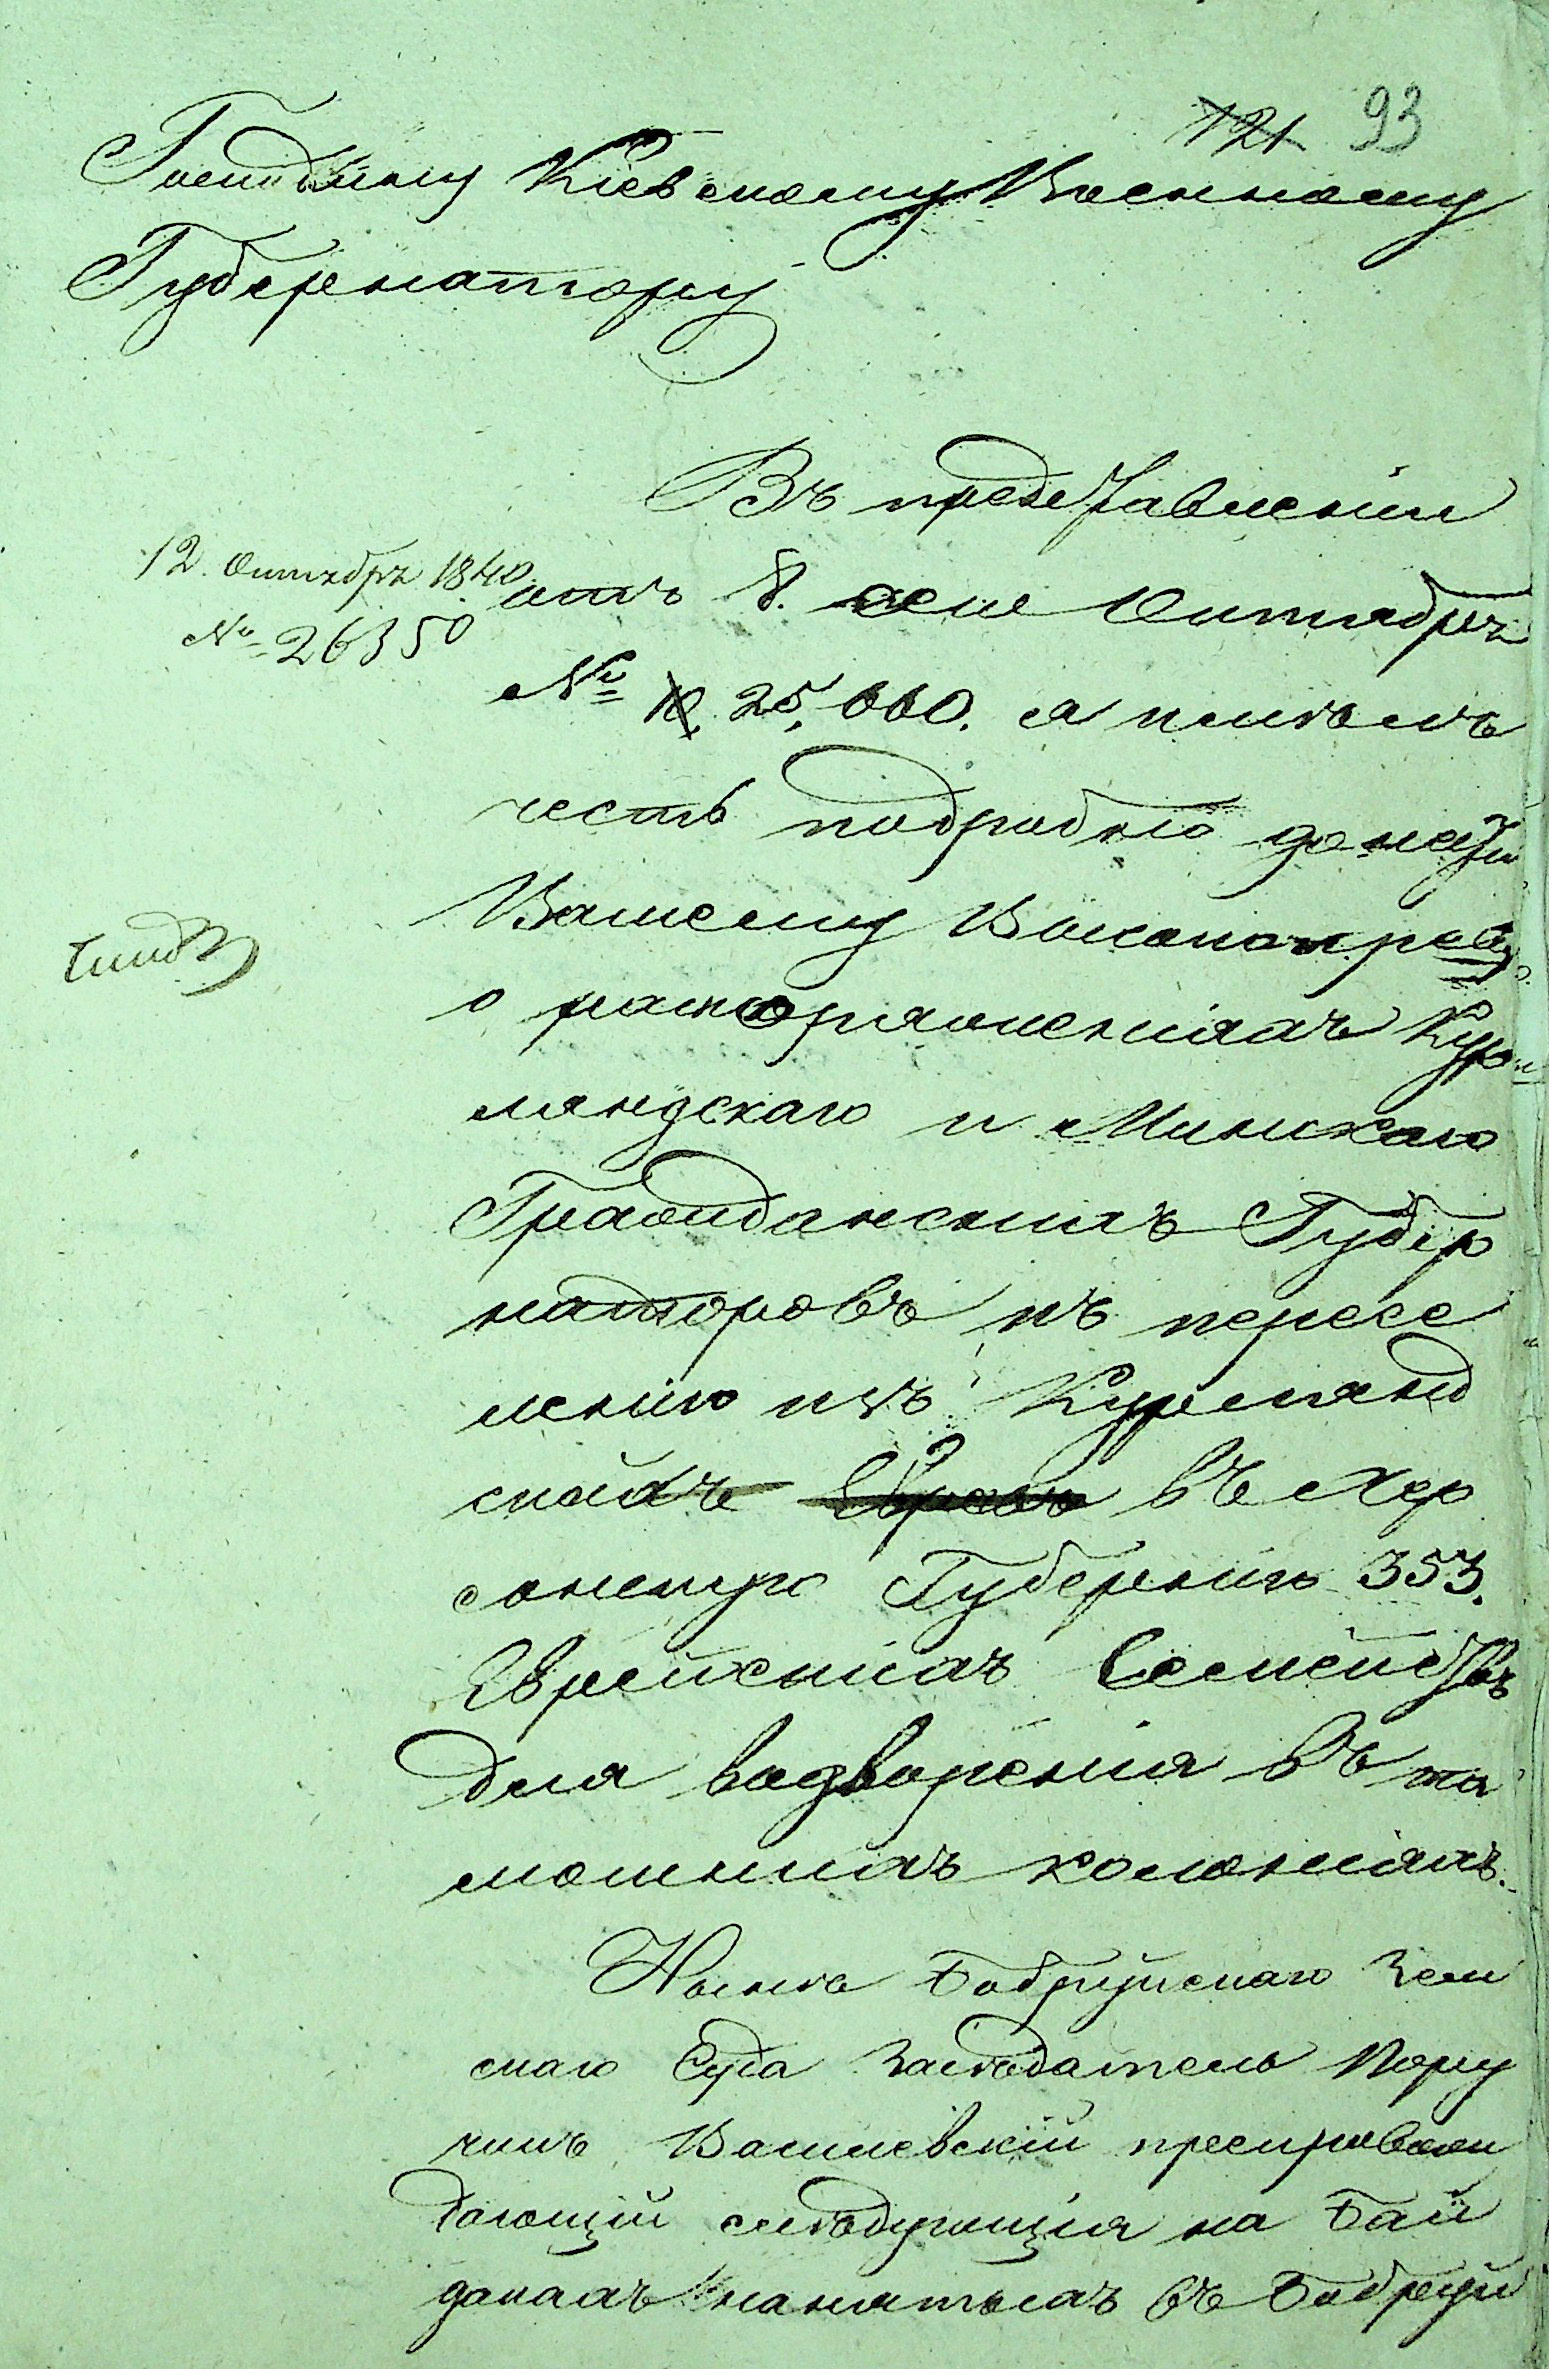 121 93
Господину Кіевскому Военному
Губернатору
Въ представленіи
12. Октября 1840
№ 26350
отъ 8. сего Октября
№ 25,660. я имѣлъ
честь подробно донести
Вашему Высокопрев.
о распоряженіяхъ Кур-
ляндскаго и Минскаго
Гражданскихъ Губер
наторовъ къ пересе
ленію изъ Курлянд
ской въ Хер
сонскую Губернію 353.
Еврейскихъ Семействъ
для водворенія въ та
мошнихъ колоніяхъ.
Нынѣ Бобруйскаго Зем
скаго Суда Засѣдатель Пору
чикъ Василевскій препровож
дающій слѣдующія на Бай
дакахъ нанятыхъ въ Бобруй